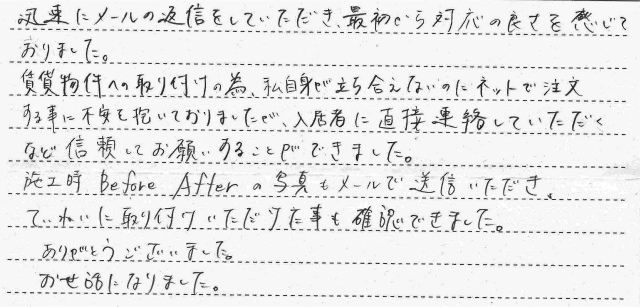 迅速にメールの返信をしていただき、最初から対応の良さを感じて
おりました。
賃貸物件への取り付けの為、私自身が立ち合えないのにネットで注文
する事に不安を抱いておりましたが、入居者に直接連絡していただく
など信頼してお願いすることができました。
施工時 Before After の写真もメールで送信いただき、
ていねいに取り付けいただけた事も確認できました。
ありがとうございました。
お世話になりました。